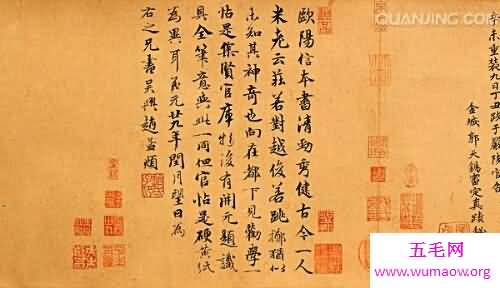 未重裝九日丁酉跋于嚴陵官舍
金城郭天錫審定真跡
歐陽信本書清勁秀健古今一人
米老云莊若對越俊若跳擲猶似
未知其神奇也向在都下見勸學一
帖是集賢官庫物後有開元題識
具全筆意與此一同但官帖是硬黃紙
為異耳至元廿九年閏月望日為
右之兄書吳興趙孟頫
QUANJING.COM
五毛网
www.wumaow.org